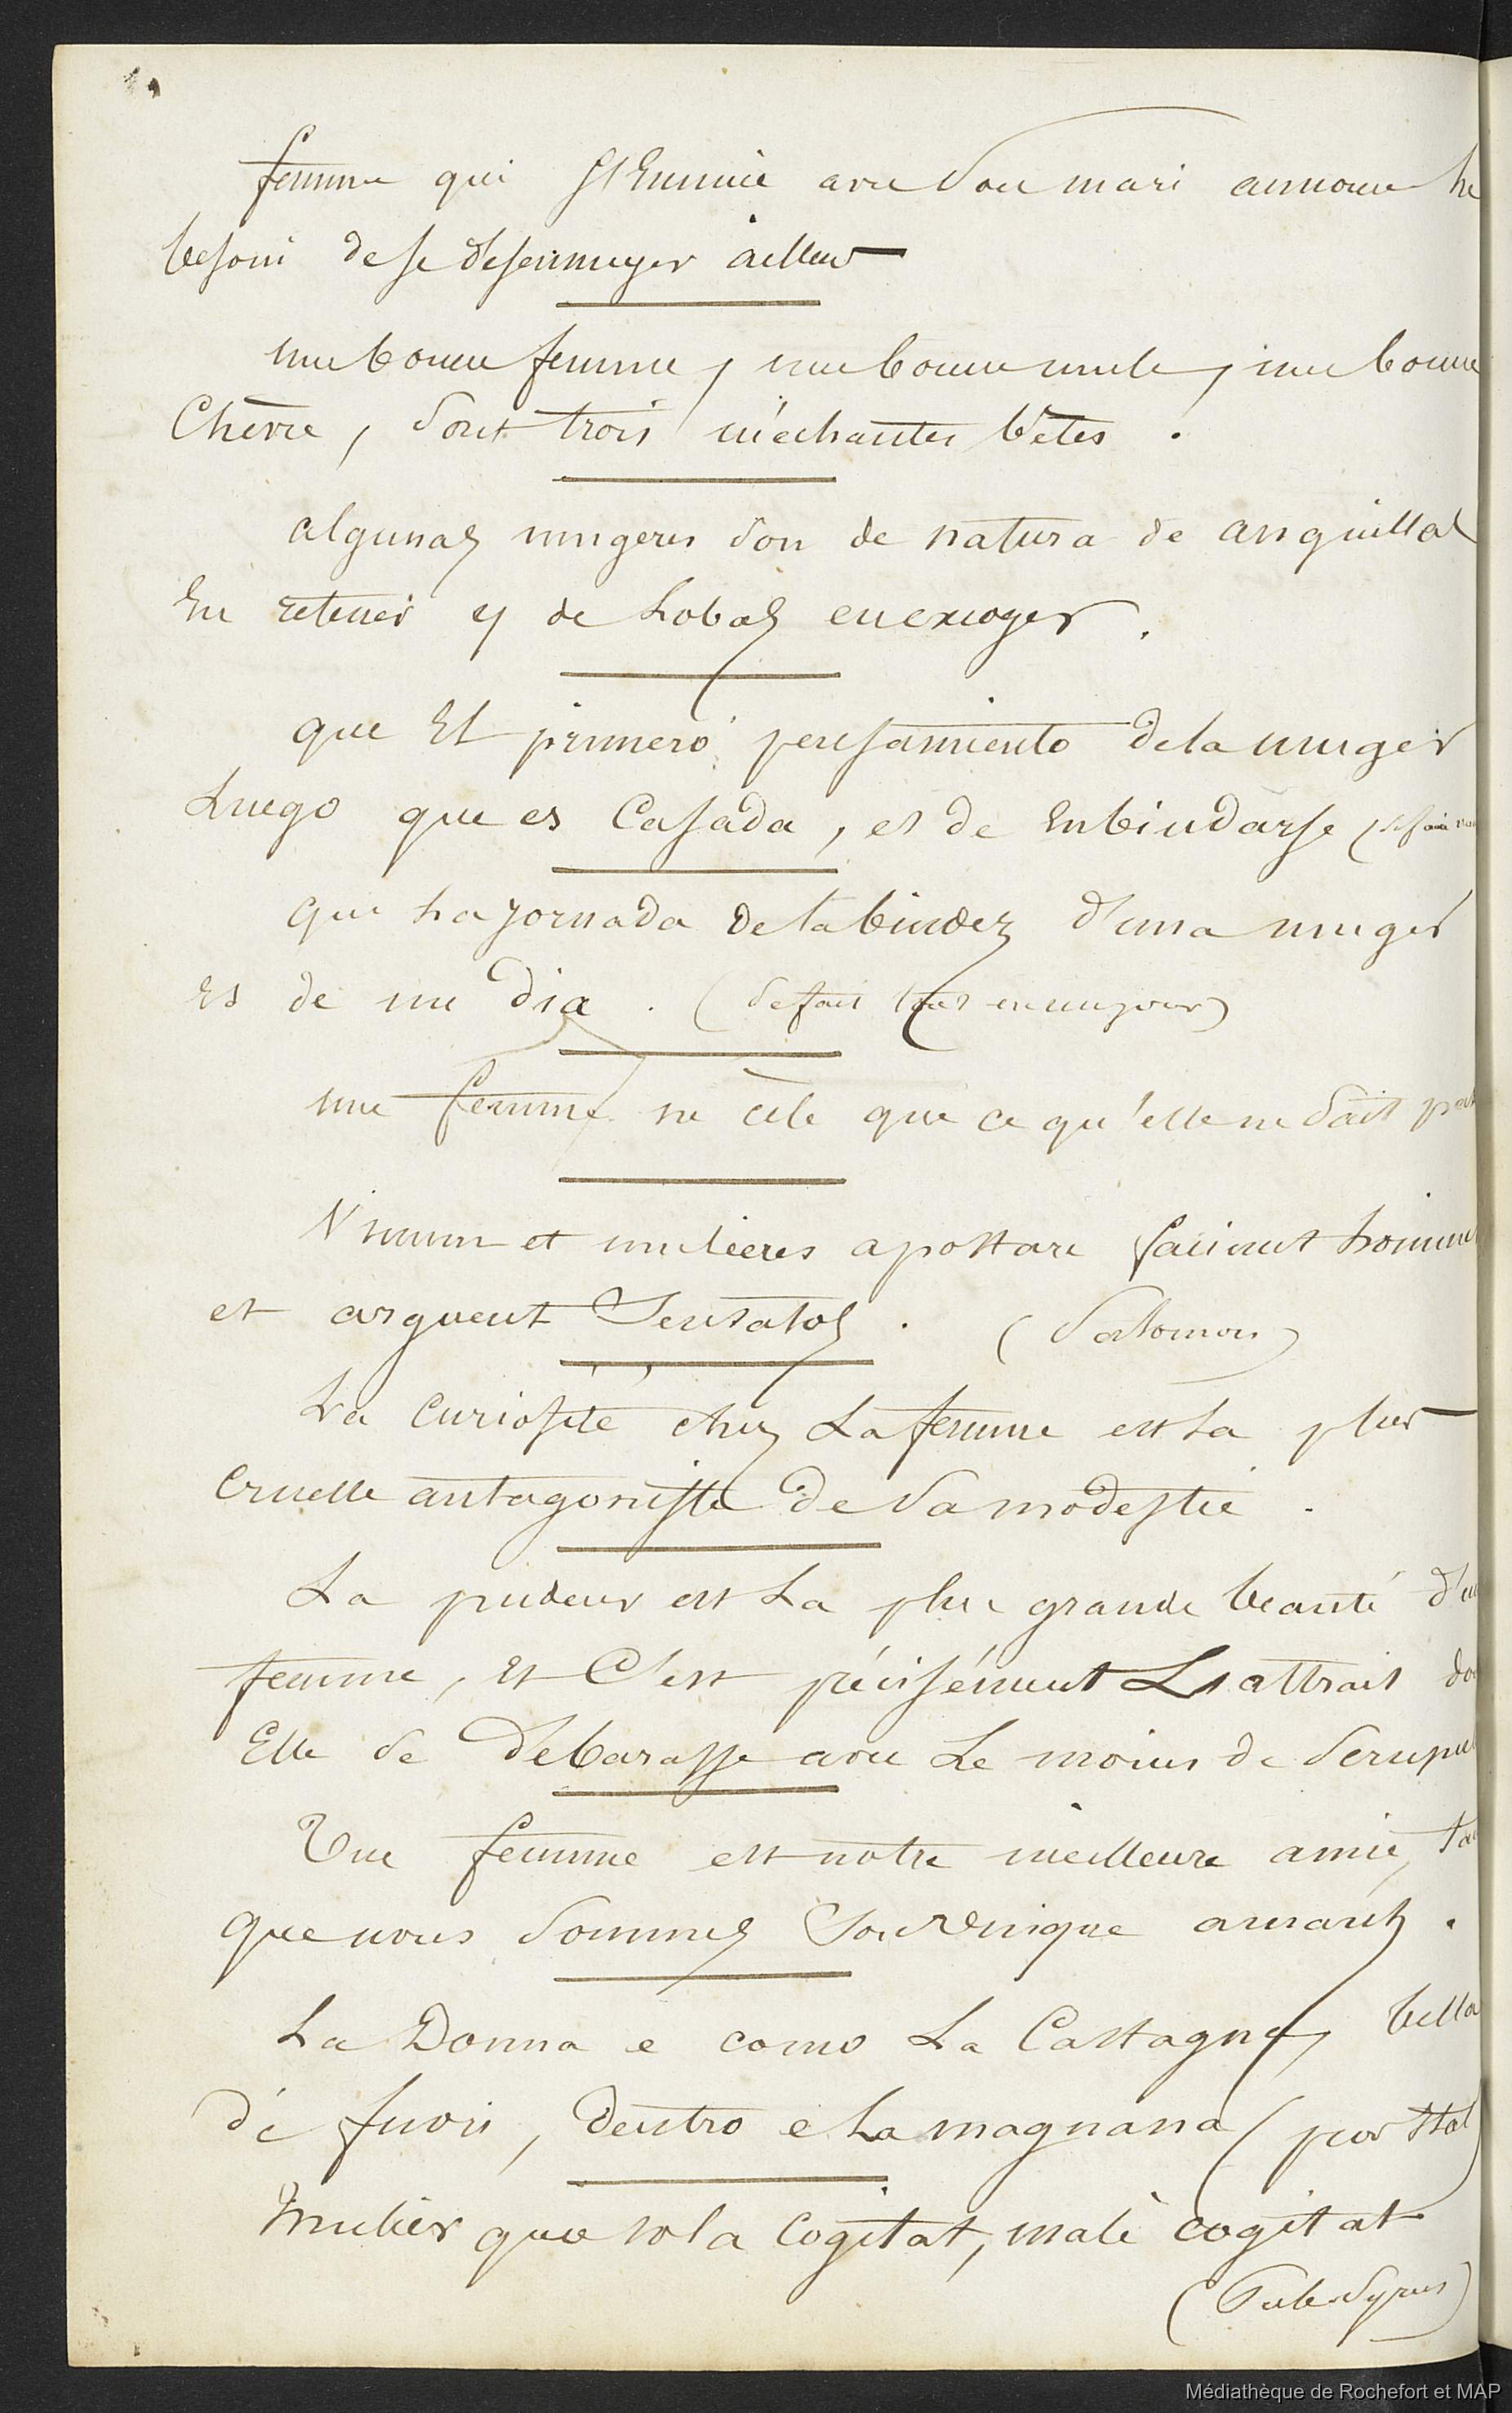 femme qui s'Ennuie avec son mari annonce le
besoin de se desennuyer ailleur
une bonne femme, une bonne mule, une bonne
Chèvre, sont trois méchantes bêtes.
algunas mugeres son de natura de anguillas
En retener y de Lobas en excoger.
que El primero pensamiento de la muger
Luego que es Casada, es de Enbiudarse (
que La jornada de la biudez d'una muger
Es de un dia. (se fait tout en un jour)
une femme ne cèle que ce qu'elle ne sait pas
Vinum et mulieres apostare faciunt homines
et arguent Sensatos. (Salomon)
La Curiosité chez La femme est La plus
Cruelle antagoniste de sa modestie.
La pudeur est La plus grande beauté d'u
femme, et C'est précisément L'attrait do
Elle se debarasse avec Le moins de Scrupul
Une femme est notre meilleure amie, ta
que nous sommes Son Unique amant.
La Donna e como La Castagna, bella
dé fuori, dentro e La magnana (prov Ital)
Mulier quæ sola Cogitat, malè cogitat
(Pub Syrus)
Médiathèque de Rochefort et MAP